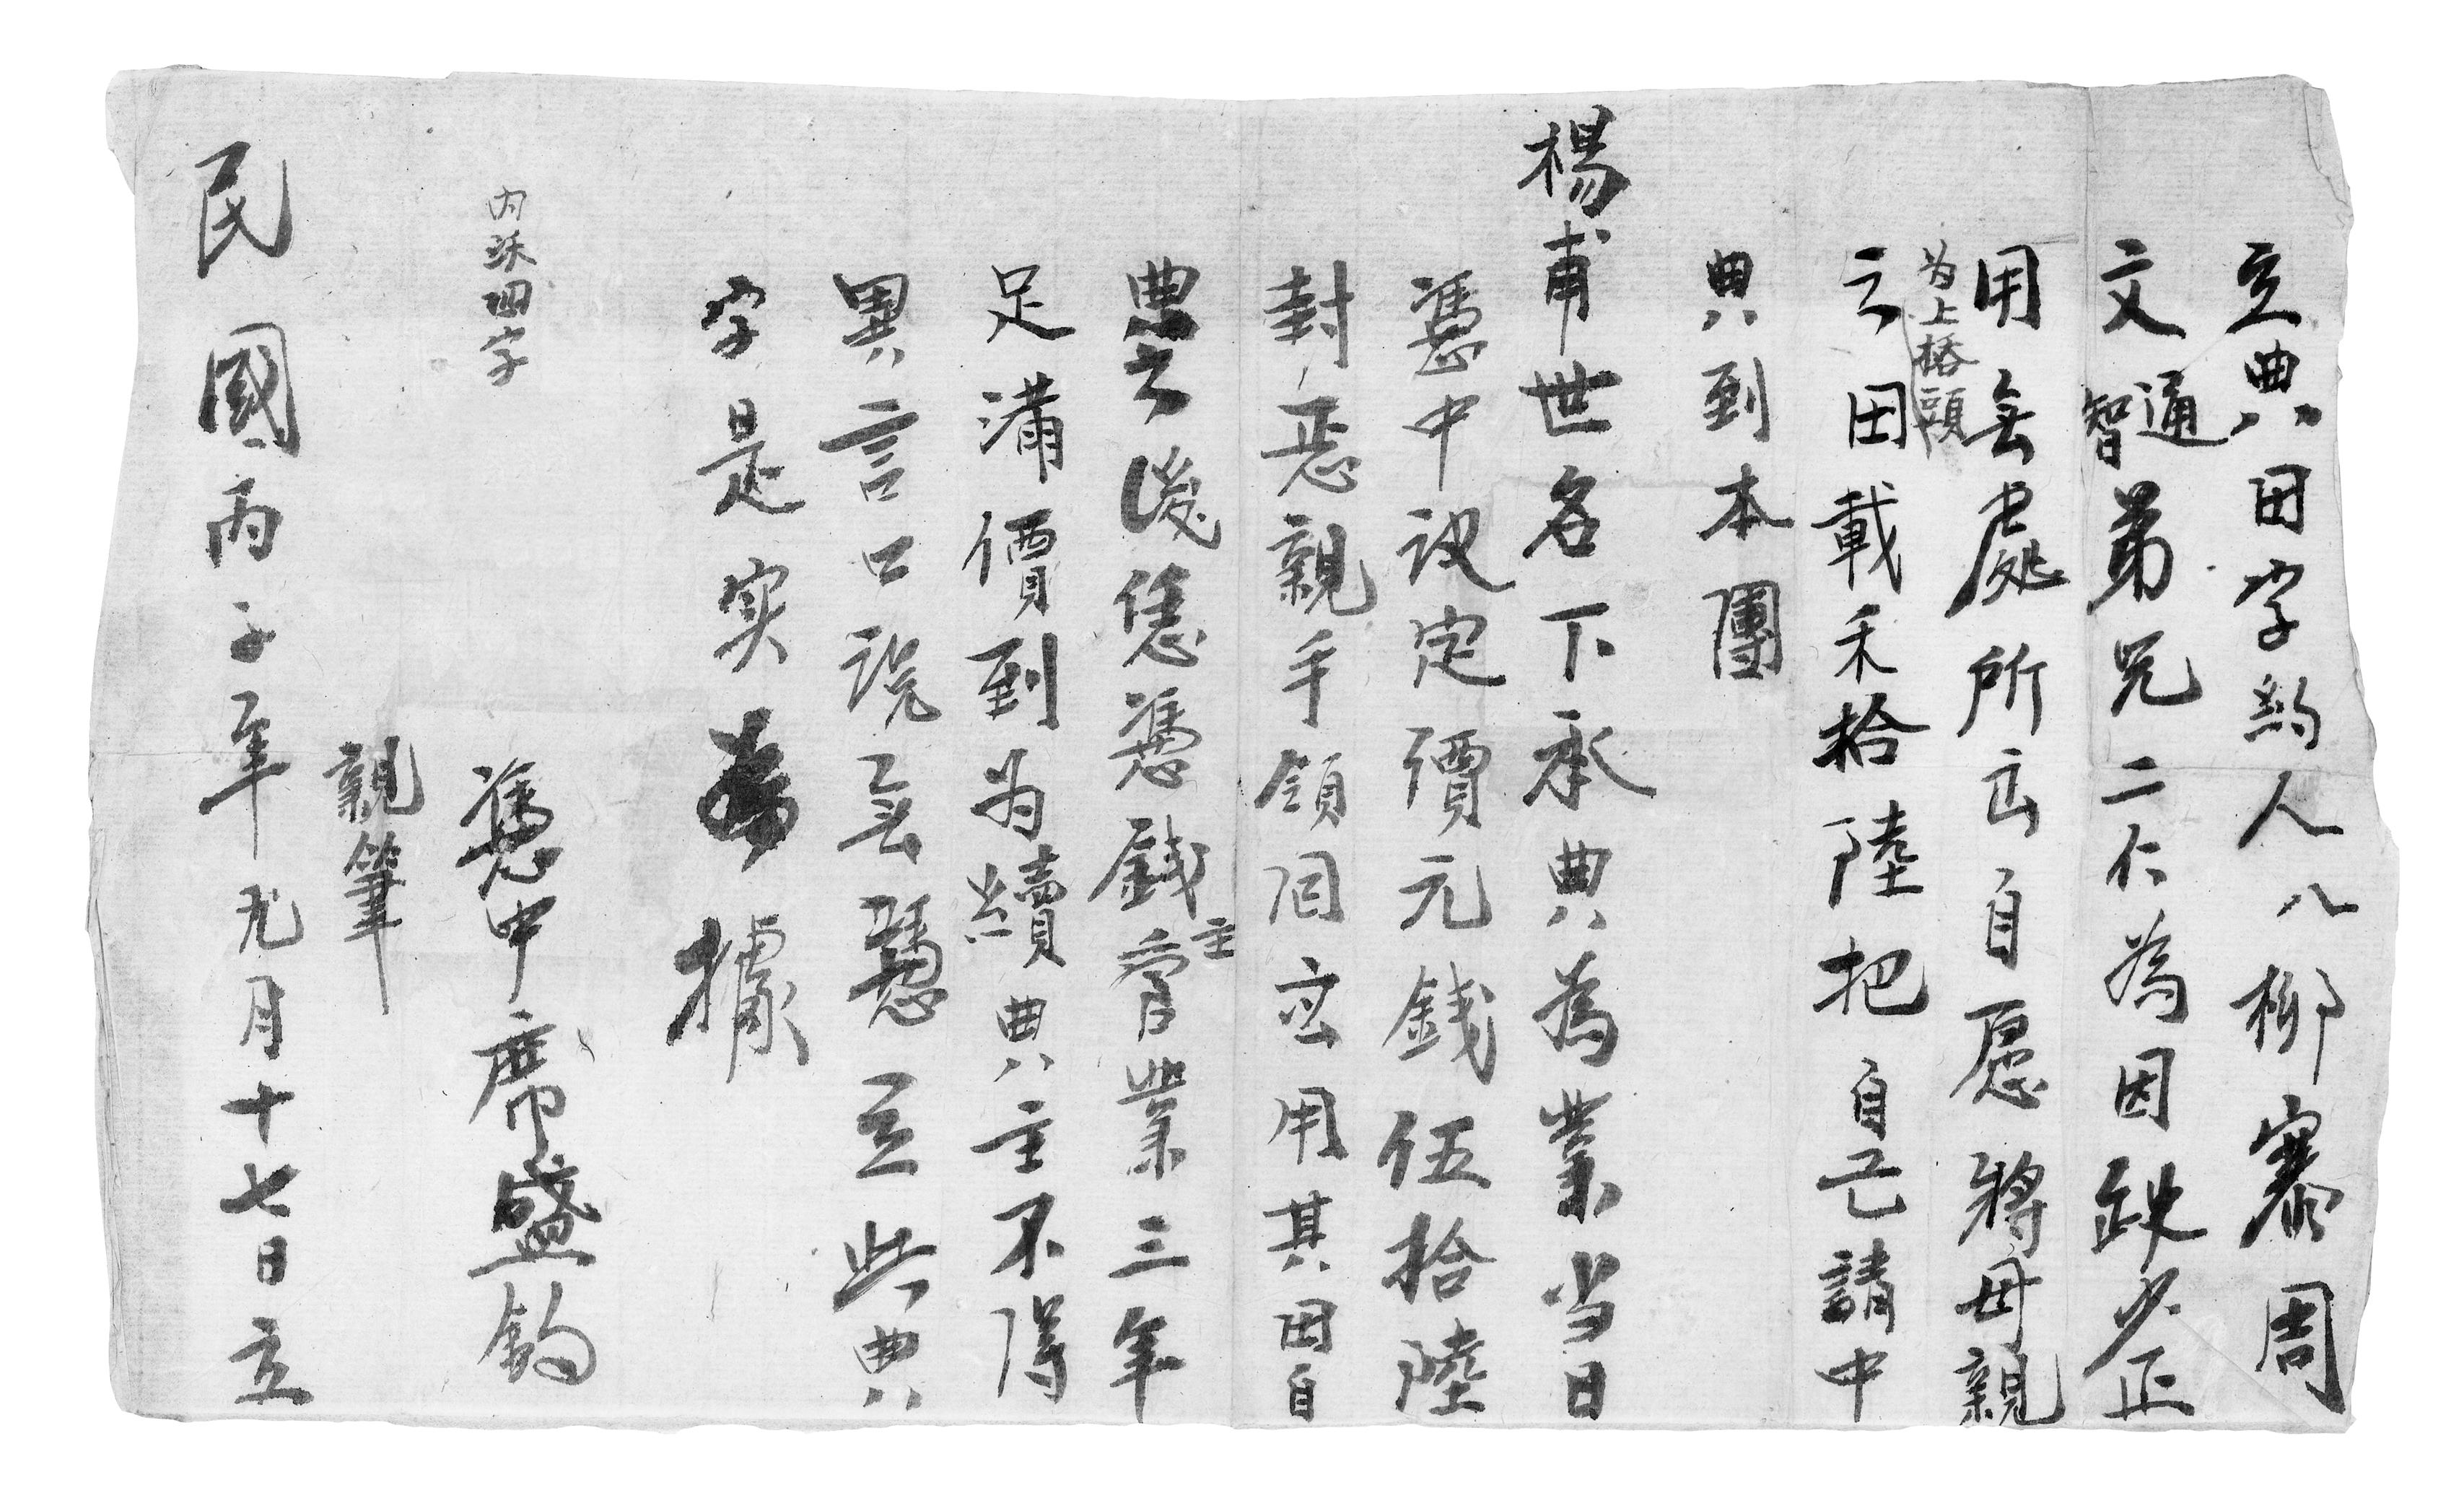 立典田字約人八柳寨周
文通智弟兄二仁為因缺少正
用無處所出自愿將母親
为上榙頭
之田載禾拾陸把自己請中
典到本團
楊甫世名下承典為業当日
憑中议定價元錢伍拾陸
封恁親手領囬应用其田自
典之後恁憑錢主管業三年
足滿價到为續典主不得
異言口说無憑立此典
字是实為據
内添四字
憑中席盛鈞
親筆
民國丙子年九月十七日立